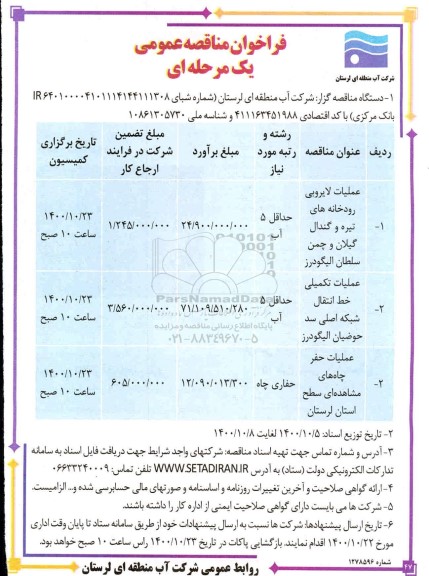 فراخوان مناقصه عمومی
یک مرحله ای
شرکت آب منطقه ای لرستان
۱- دستگاه مناقصه گزار: شرکت آب منطقه ای لرستان (شماره شبای IR ۶۴۰۱۰۰۰۰۴۱۰۱۱۱۴۱۴۴۱۱۱۳۰۸
بانک مرکزی) با کد اقتصادی ۴۱۱۱۶۳۴۵۱۹۸۸ و شناسه ملی ۱۰۸۶۱۳۰۵۷۳۰
ردیف عنوان مناقصه رشته و رتبه مورد نیاز مبلغ برآورد مبلغ تضمین شرکت در فرایند ارجاع کار تاریخ برگزاری کمیسیون
۱- عملیات لایروبی رودخانه های تیره و گندال گیلان و چمن سلطان الیگودرز حداقل ۵ آب ۲۴/۹۰۰/۰۰۰/۰۰۰ ۱/۲۴۵/۰۰۰/۰۰۰ ۱۴۰۰/۱۰/۲۳ ساعت ۱۰ صبح
۲- عملیات تکمیلی خط انتقال شبکه اصلی سد حوضیان الیگودرز حداقل ۵ آب ۷۱/۱۰۹/۵۱۰/۲۸۰ ۳/۵۶۰/۰۰۰/۰۰۰ ۱۴۰۰/۱۰/۲۳ ساعت ۱۰ صبح
۲- عملیات حفر چاه‌های مشاهده‌ای سطح استان لرستان حفاری چاه ۱۲/۰۹۰/۰۱۳/۳۰۰ ۶۰۵/۰۰۰/۰۰۰ ۱۴۰۰/۱۰/۲۳ ساعت ۱۰ صبح
ParsNamadData
پایگاه اطلاع رسانی مناقصه و مزایده
۰۲۱-۸۸۳۴۹۶۷۰-۵
۲- تاریخ توزیع اسناد: ۱۴۰۰/۱۰/۵ لغایت ۱۴۰۰/۱۰/۸
۳- آدرس و شماره تماس جهت تهیه اسناد مناقصه: شرکتهای واجد شرایط جهت دریافت فایل اسناد به سامانه
تدارکات الکترونیکی دولت (ستاد) به آدرس WWW.SETADIRAN.IR تلفن تماس: ۰۶۶۳۳۲۴۰۰۰۹
۴- ارائه گواهی صلاحیت و آخرین تغییرات روزنامه و اساسنامه و صورتهای مالی حسابرسی شده و.. الزامیست.
۵- شرکت ها می بایست دارای گواهی صلاحیت ایمنی از اداره کار را داشته باشند.
۶- تاریخ ارسال پیشنهادها: شرکت ها نسبت به ارسال پیشنهادات خود از طریق سامانه ستاد تا پایان وقت اداری
مورخ ۱۴۰۰/۱۰/۲۲ اقدام نمایند. بازگشایی پاکات در تاریخ ۱۴۰۰/۱۰/۲۳ راس ساعت ۱۰ صبح خواهد بود.
شماره ۱۲۷۸۵۹۶
روابط عمومی شرکت آب منطقه ای لرستان
۴۷